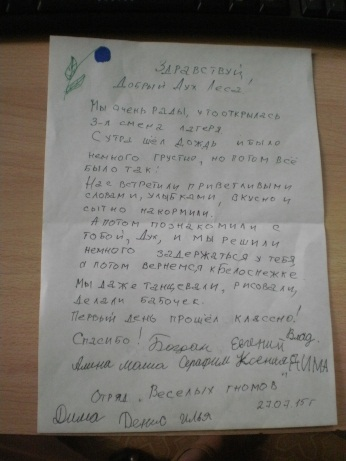 Здравствуй,
Добрый Дух Леса!
Мы очень рады, что открылась
3-я смена лагеря
С утра шёл дождь и было
немного грустно, но потом всё
было так:
Нас встретили приветливыми
словами, улыбками, вкусно и
сытно накормили.
А потом познакомили с
тобой, Дух, и мы решили
немного задержаться у тебя
а потом вернемся к Белоснежке
Мы даже танцевали, рисовали,
делали бабочек.
Первый день прошёл классно!
Спасибо! Богдан Евгений Влад
Алина Маша Серафим Ксения ДИМА
Отряд „Веселых гномов"
Дима Денис Илья 27.07.15г